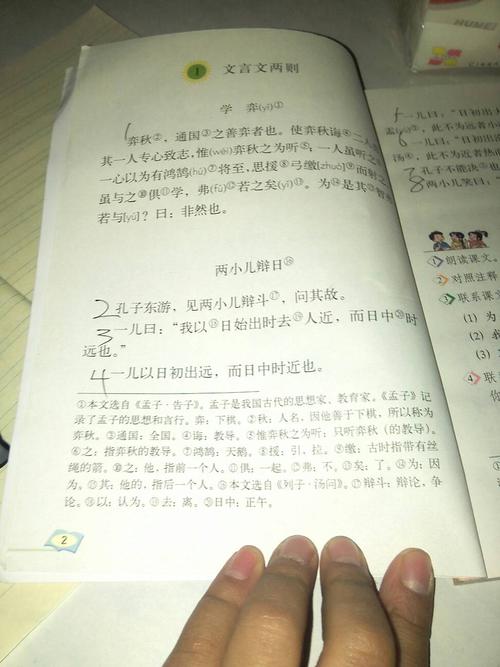 1 文言文两则
学 弈(yì)①
1 弈秋②，通国③之善弈者也。使弈秋诲④二人
其一人专心致志，惟(wéi)弈秋之为听⑤；一人虽听之
一心以为有鸿鹄(hú)⑦将至，思援⑧弓缴(zhuó)⑨而射之
虽与之⑩俱⑪学，弗(fú)⑫若之矣(yǐ)⑬。为⑭是其⑮
若与(yú)？曰：非然也。
两小儿辩日⑯
2 孔子东游，见两小儿辩斗⑰，问其故。
3 一儿曰：“我以⑱日始出时去⑲人近，而日中⑳时
远也。”
4 一儿以日初出远，而日中时近也。
①本文选自《孟子·告子》。孟子是我国古代的思想家、教育家。《孟子》记
录了孟子的思想和言行。弈：下棋。②秋：人名，因他善于下棋，所以称为
弈秋。③通国：全国。④诲：教导。⑤惟弈秋之为听：只听弈秋（的教导）。
⑥之：指弈秋的教导。⑦鸿鹄：天鹅。⑧援：引，拉。⑨缴：古时指带有丝
绳的箭。⑩之：他，指前一个人。⑪俱：一起。⑫弗：不。⑬矣：了。⑭为：因
为。⑮其：他的，指后一个人。⑯本文选自《列子·汤问》。⑰辩斗：辩论，争
论。⑱以：认为。⑲去：离。⑳日中：正午。
2
一儿曰：“日初出
，此不为远者小
6 一儿曰：“日初出
汤，此不为近者热
7 孔子不能决
8 两小儿笑曰：
1 朗读课文。
2 对照注释
3 联系课
(1) 为
(2) 我
(3)
4 联